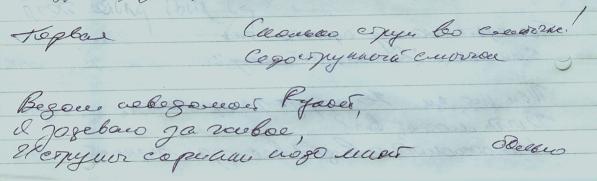 Первая
Сколько струн во смычке!
Седострунный смычок
Ведом неведомой Рукой,
Я задеваю за живое,
И струны скрипки подо мной больно